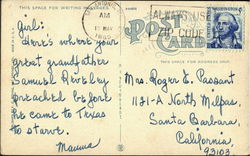 THIS SPACE FOR WRITING MESSAGES
Girl:
Here's where your
great grandfather
Samuel
preached before
he came to Texas
to starve.
AM
1965
POST CARD
ALWAYS USE
ZIP CODE
WASHINGTON
THIS SPACE FOR ADDRESS
Mrs. Roger E. Passant
1131-A North Milpas
Santa Barbara,
California
93103